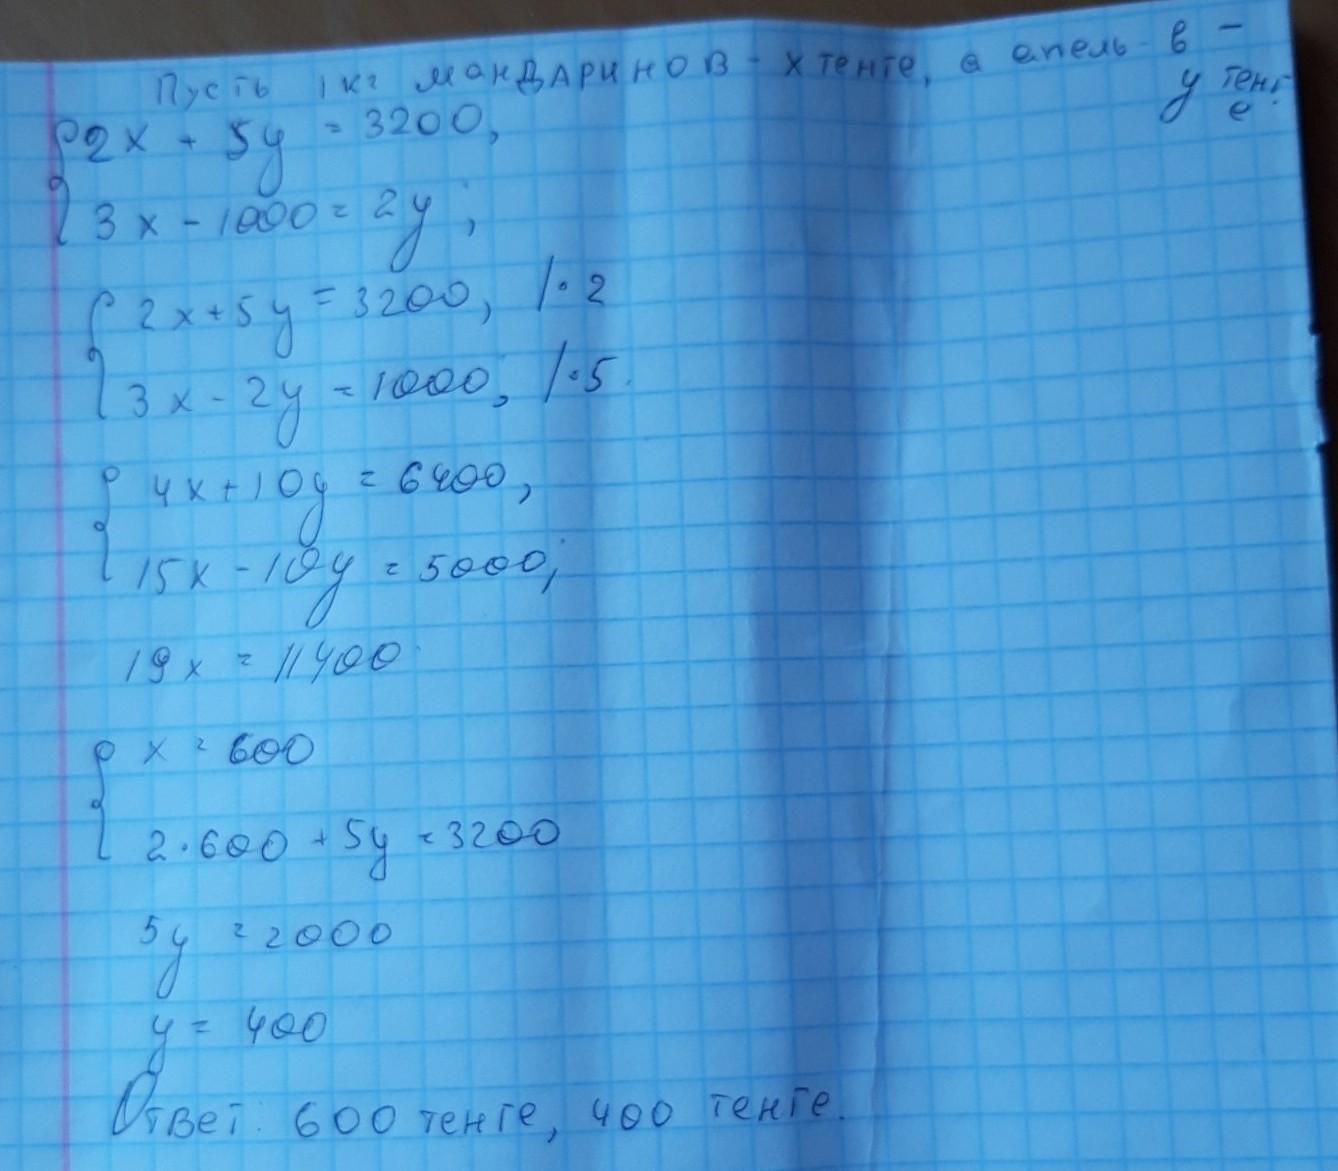 Пусть 1 кг мандаринов - x тенге, а апельв -
y тенг
е
2x + 5y = 3200,
3x - 1000 = 2y ;
2x + 5y = 3200, /·2
3x - 2y = 1000; /·5
4x + 10y = 6400,
15x - 10y = 5000;
19x = 11400
x = 600
2·600 + 5y = 3200
5y = 2000
y = 400
Ответ: 600 тенге, 400 тенге.